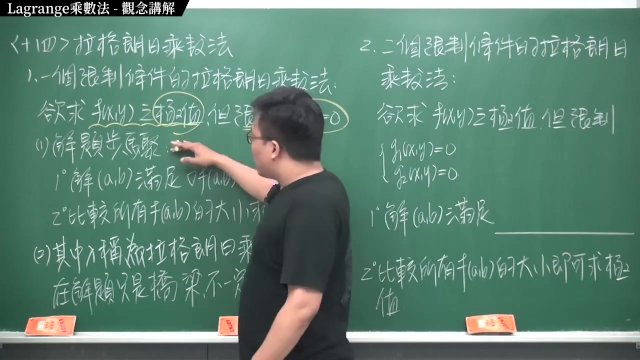 Lagrange乘數法 - 觀念講解
<十四>拉格朗日乘數法
1.一個限制條件的拉格朗日乘數法:
欲求 f(x,y)之極值,但限
=0
(1)解題步驟:
1°解(a,b)滿足 ▽f(a,b)
2°比較所有f(a,b)的大小,求
(2)其中λ稱為拉格朗日乘
在解題只是橋梁,不一定
2.二個限制條件的拉格朗日
乘數法:
欲求 f(x,y)之極值,但限制
g₁(x,y)=0
g₂(x,y)=0
1°解(a,b)滿足
2°比較所有f(a,b)的大小即可求極
值